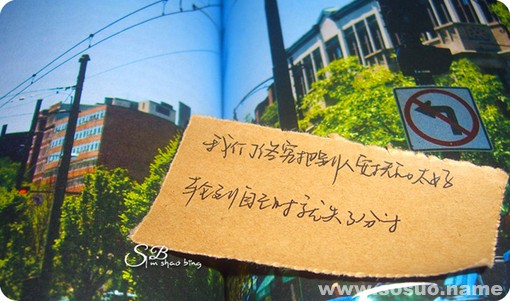 我们 把别人安抚 太好
轮到自己时就失了分寸
SB
m shao bing
www.sosuo.name